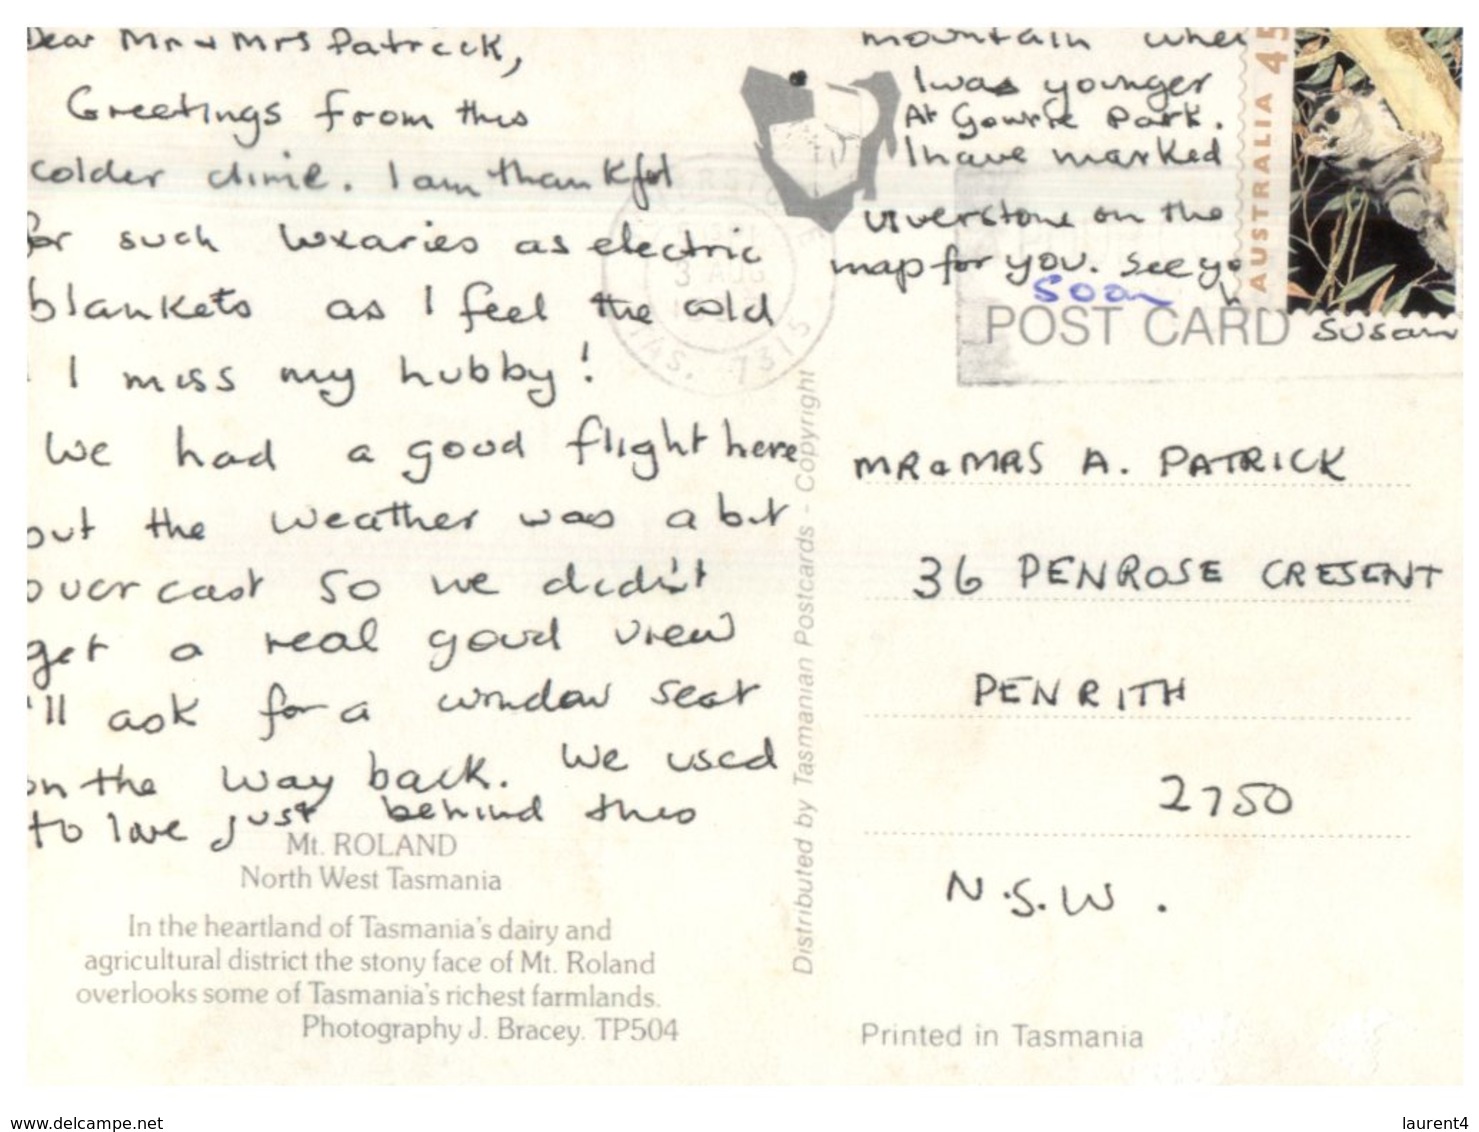 Dear Mr & Mrs Patrick,
Greetings from this
colder clime. I am thankful
for such luxaries as electric
blankets as I feel the cold
I miss my hubby!
We had a good flight here
but the weather was a bit
overcast so we didn't
get a real good view
'll ask for a window seat
on the way back. We used
to live just behind this
mountain when
I was younger
At Gowrie Park.
I have marked
Ulverstone on the
map for you. See you
soon
Susan
AUSTRALIA 45
3 AUG
TAS. 7315
POST CARD
MR & MRS A. PATRICK
36 PENROSE CRESENT
PENRITH
2750
N.S.W.
Mt. ROLAND
North West Tasmania
In the heartland of Tasmania's dairy and
agricultural district the stony face of Mt. Roland
overlooks some of Tasmania's richest farmlands.
Photography J. Bracey. TP504
Distributed by Tasmanian Postcards - Copyright
Printed in Tasmania
www.delcampe.net
laurent4